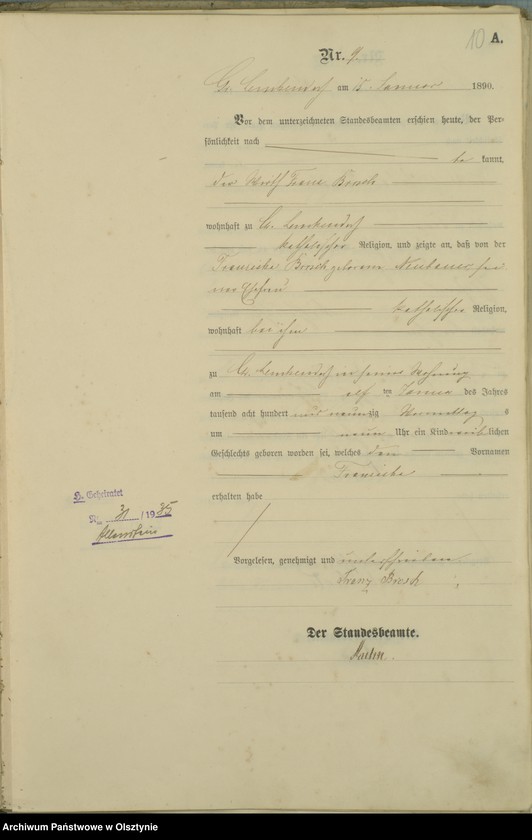 10 A.
Nr. 9.
Gr. Lemkendorf am 15. Januar 1890.
Vor dem unterzeichneten Standesbeamten erschien heute, der Per-
sönlichkeit nach
be kannt,
der Wirth Franz Brosch
wohnhaft zu Gr. Lemkendorf
katholischer Religion, und zeigte an, daß von der
Franciska Brosch geborenen
Ehefrau
katholischer Religion,
wohnhaft bei ihm
zu Gr. Lemkendorf in seiner Wohnung
am elf ten Januar des Jahres
tausend acht hundert und neunzig Vormittag s
um neun Uhr ein Kind weiblichen
Geschlechts geboren worden sei, welches den Vornamen
Franciska
erhalten habe
H. Geheiratet
No 31 /1935
Allenstein
Vorgelesen, genehmigt und unterschrieben
Franz Brosch
Der Standesbeamte.
Archiwum Państwowe w Olsztynie